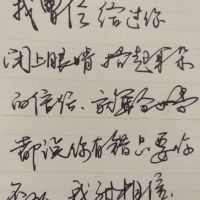 我曾信信过你
闭上眼睛捂起耳朵
的信任、就算全世界
都说你有错只要你
否认、我就相信